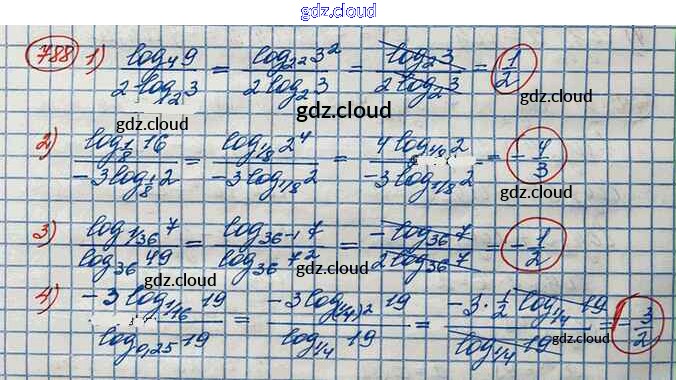 gdz.cloud
788 1) log₄9 / 2log₂3 = log₂²3² / 2log₂3 = log₂3 / 2log₂3 = 1/2
gdz.cloud gdz.cloud
gdz.cloud
gdz.cloud
2) log₁/₈16 / -3log₁/₈2 = log₁/₈2⁴ / -3log₁/₈2 = 4log₁/₈2 / -3log₁/₈2 = -4/3
gdz.cloud
3) log₁/₃₆7 / log₃₆49 = log₃₆₋₁7 / log₃₆7² = -log₃₆7 / 2log₃₆7 = -1/2
gdz.cloud
gdz.cloud
4) -3log₁/₁₆19 / log₀,₂₅19 = -3log₍₁/₄₎²19 / log₁/₄19 = -3·1/2log₁/₄19 / log₁/₄19 = -3/2
gdz.cloud
gdz.cloud